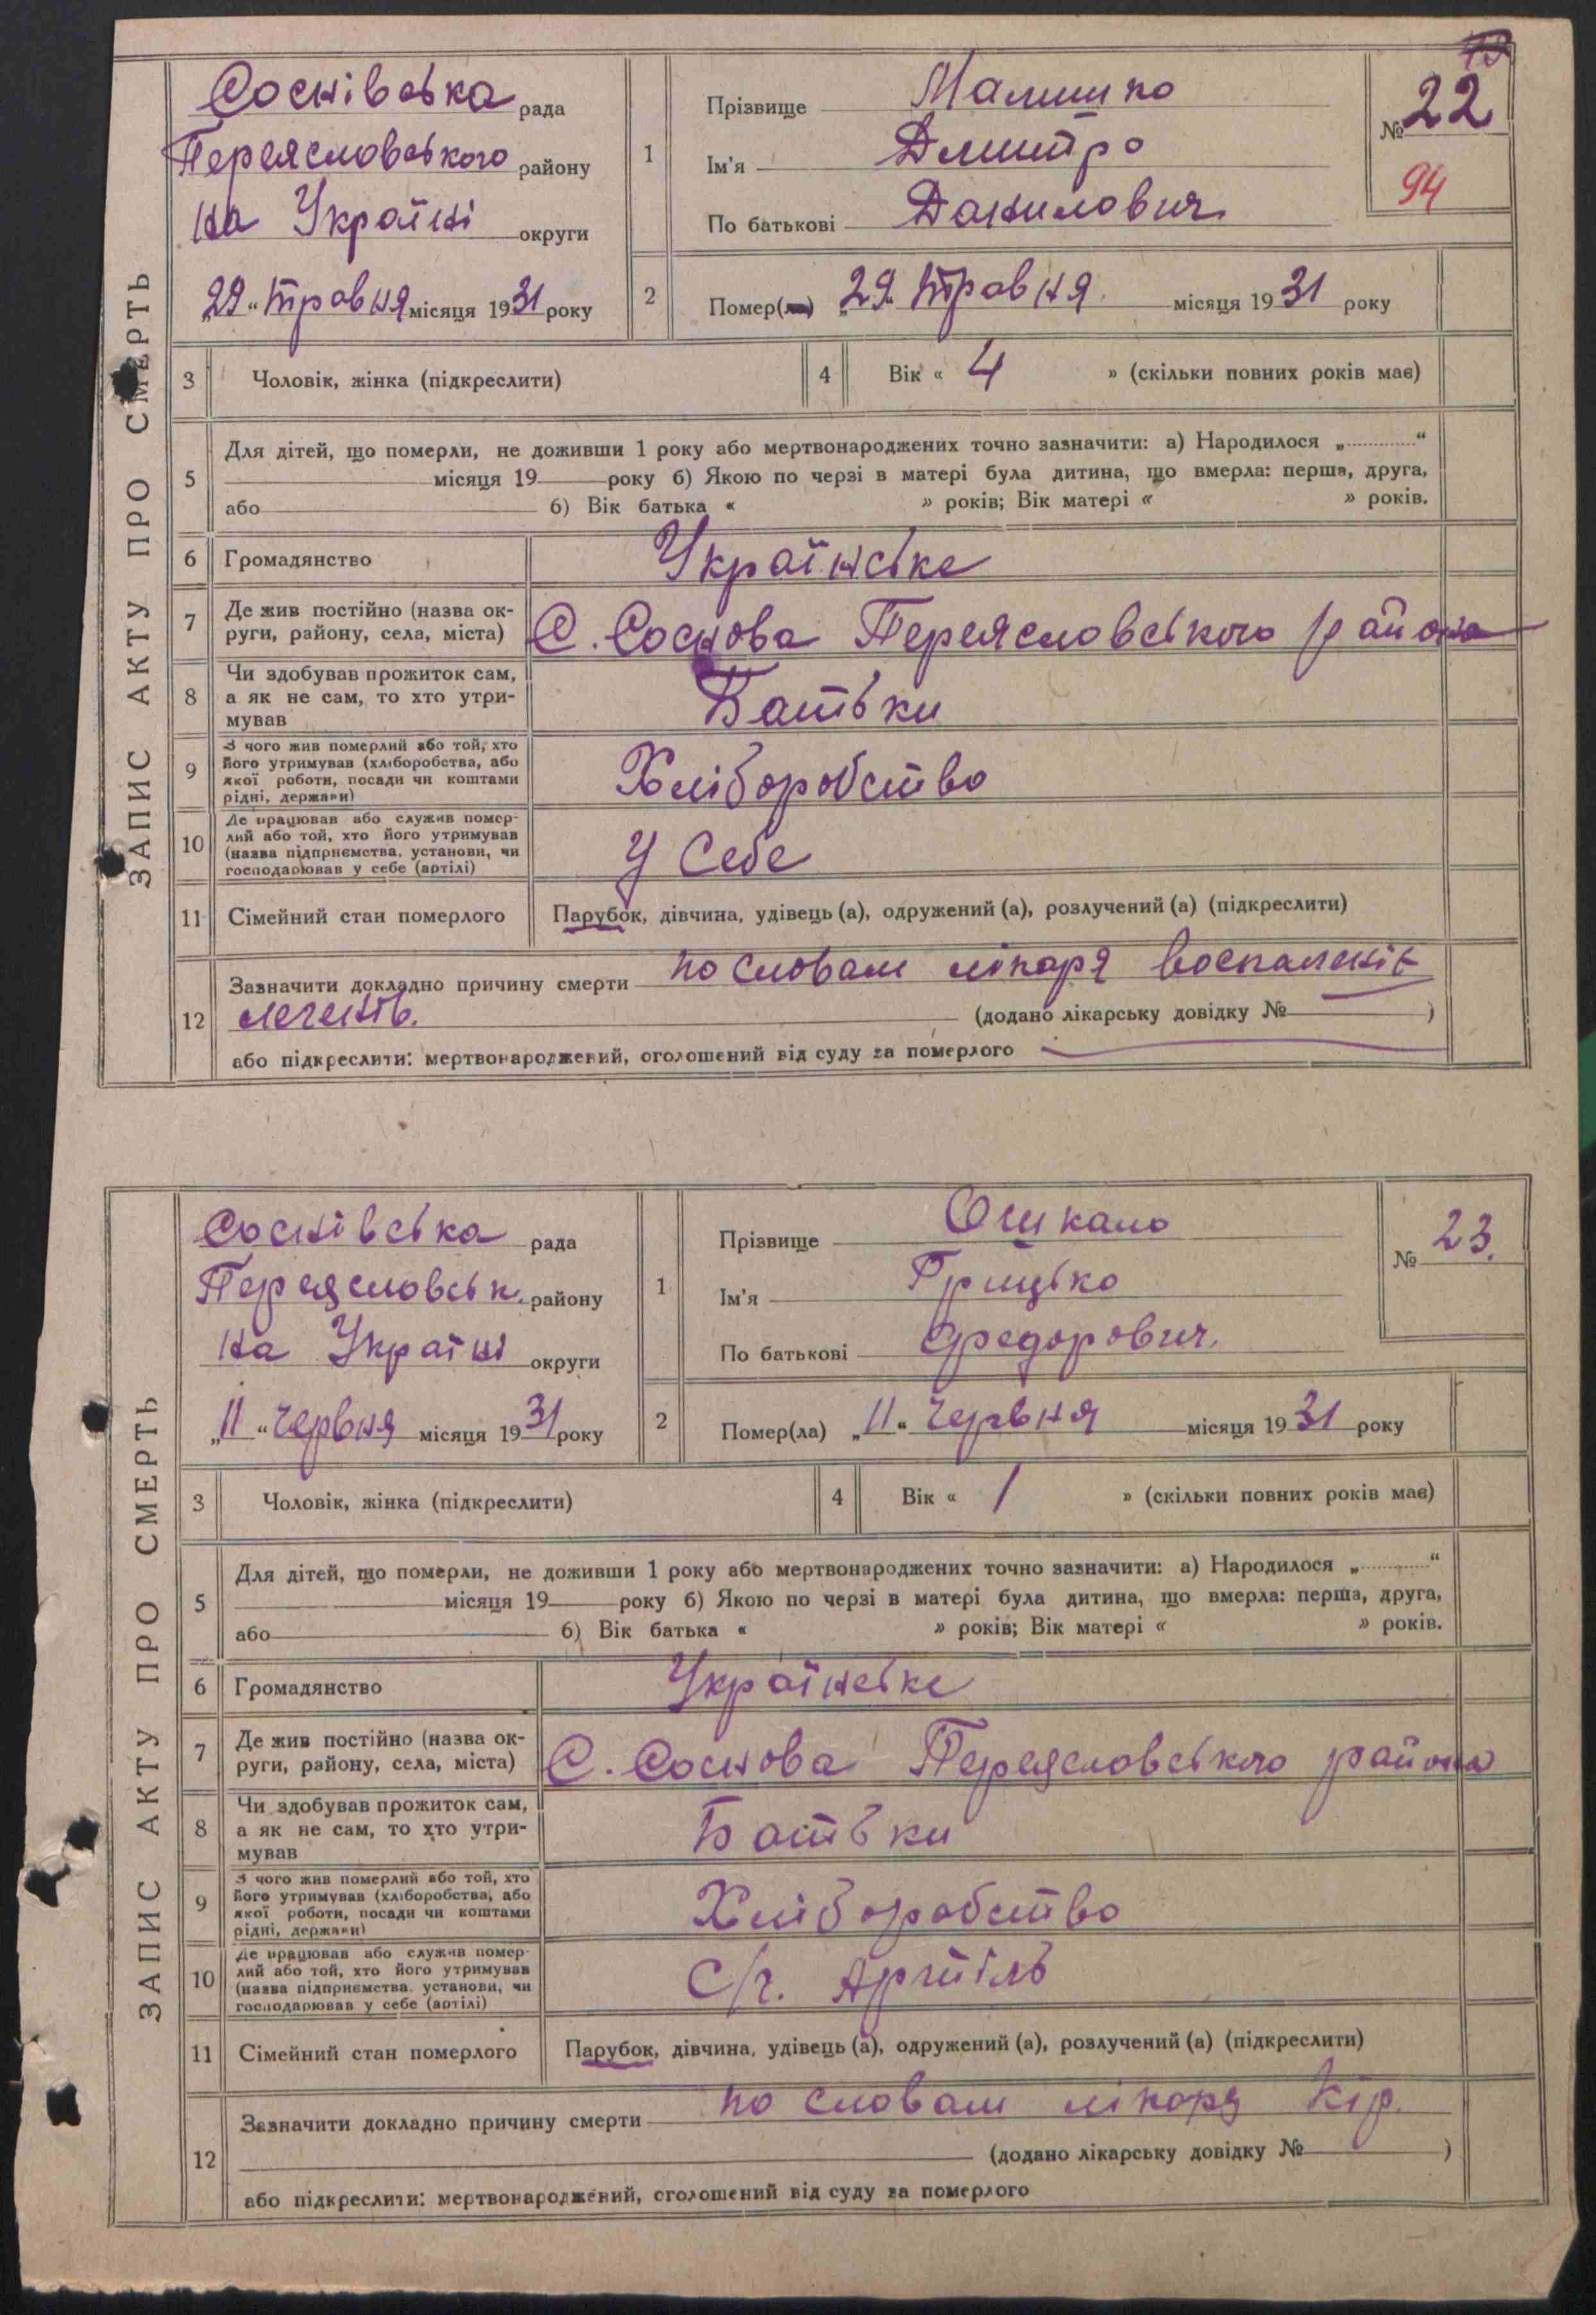 ЗАПИС АКТУ ПРО СМЕРТЬ
Соснівська рада
Переясловського району
на Україні округи
„29“ травня місяця 1931 року
1
Прізвище Малишко
Ім'я Дмитро
По батькові Данилович
№ 22
94
2 Помер(ла) „29“ травня місяця 1931 року
3 Чоловік, жінка (підкреслити)
4 Вік « 4 » (скільки повних років має)
5 Для дітей, що померли, не доживши 1 року або мертвонароджених точно зазначити: а) Народилося „............“
місяця 19 року б) Якою по черзі в матері була дитина, що вмерла: перша, друга,
або б) Вік батька « » років; Вік матері « » років.
6 Громадянство Українське
7 Де жив постійно (назва ок-
руги, району, села, міста) С. Соснова Переясловського района
8 Чи здобував прожиток сам,
а як не сам, то хто утри-
мував Батьки
9 З чого жив померлий або той, хто
його утримував (хліборобства, або
якої роботи, посади чи коштами
рідні, держави) Хліборобство
10 Де працював або служив помер-
лий або той, хто його утримував
(назва підприємства, установи, чи
господарював у себе (артілі) У Себе
11 Сімейний стан померлого Парубок, дівчина, удівець (а), одружений (а), розлучений (а) (підкреслити)
12 Зазначити докладно причину смерти по словам лікаря воспаленіє
легенів.
(додано лікарську довідку № )
або підкреслити: мертвонароджений, оголошений від суду за померлого
ЗАПИС АКТУ ПРО СМЕРТЬ
Соснівська рада
Переясловськ. району
на Україні округи
„11“ червня місяця 1931 року
1
Прізвище Ошкало
Ім'я Грицько
По батькові Федорович.
№ 23.
2 Помер(ла) „11“ червня місяця 1931 року
3 Чоловік, жінка (підкреслити)
4 Вік « 1 » (скільки повних років має)
5 Для дітей, що померли, не доживши 1 року або мертвонароджених точно зазначити: а) Народилося „............“
місяця 19 року б) Якою по черзі в матері була дитина, що вмерла: перша, друга,
або б) Вік батька « » років; Вік матері « » років.
6 Громадянство Українське
7 Де жив постійно (назва ок-
руги, району, села, міста) С. Соснова Переясловського района
8 Чи здобував прожиток сам,
а як не сам, то хто утри-
мував Батьки
9 З чого жив померлий або той, хто
його утримував (хліборобства, або
якої роботи, посади чи коштами
рідні, держави) Хліборобство
10 Де працював або служив помер-
лий або той, хто його утримував
(назва підприємства, установи, чи
господарював у себе (артілі) С/г. Артіль
11 Сімейний стан померлого Парубок, дівчина, удівець (а), одружений (а), розлучений (а) (підкреслити)
12 Зазначити докладно причину смерти по словам лікаря Кір.
(додано лікарську довідку № )
або підкреслити: мертвонароджений, оголошений від суду за померлого